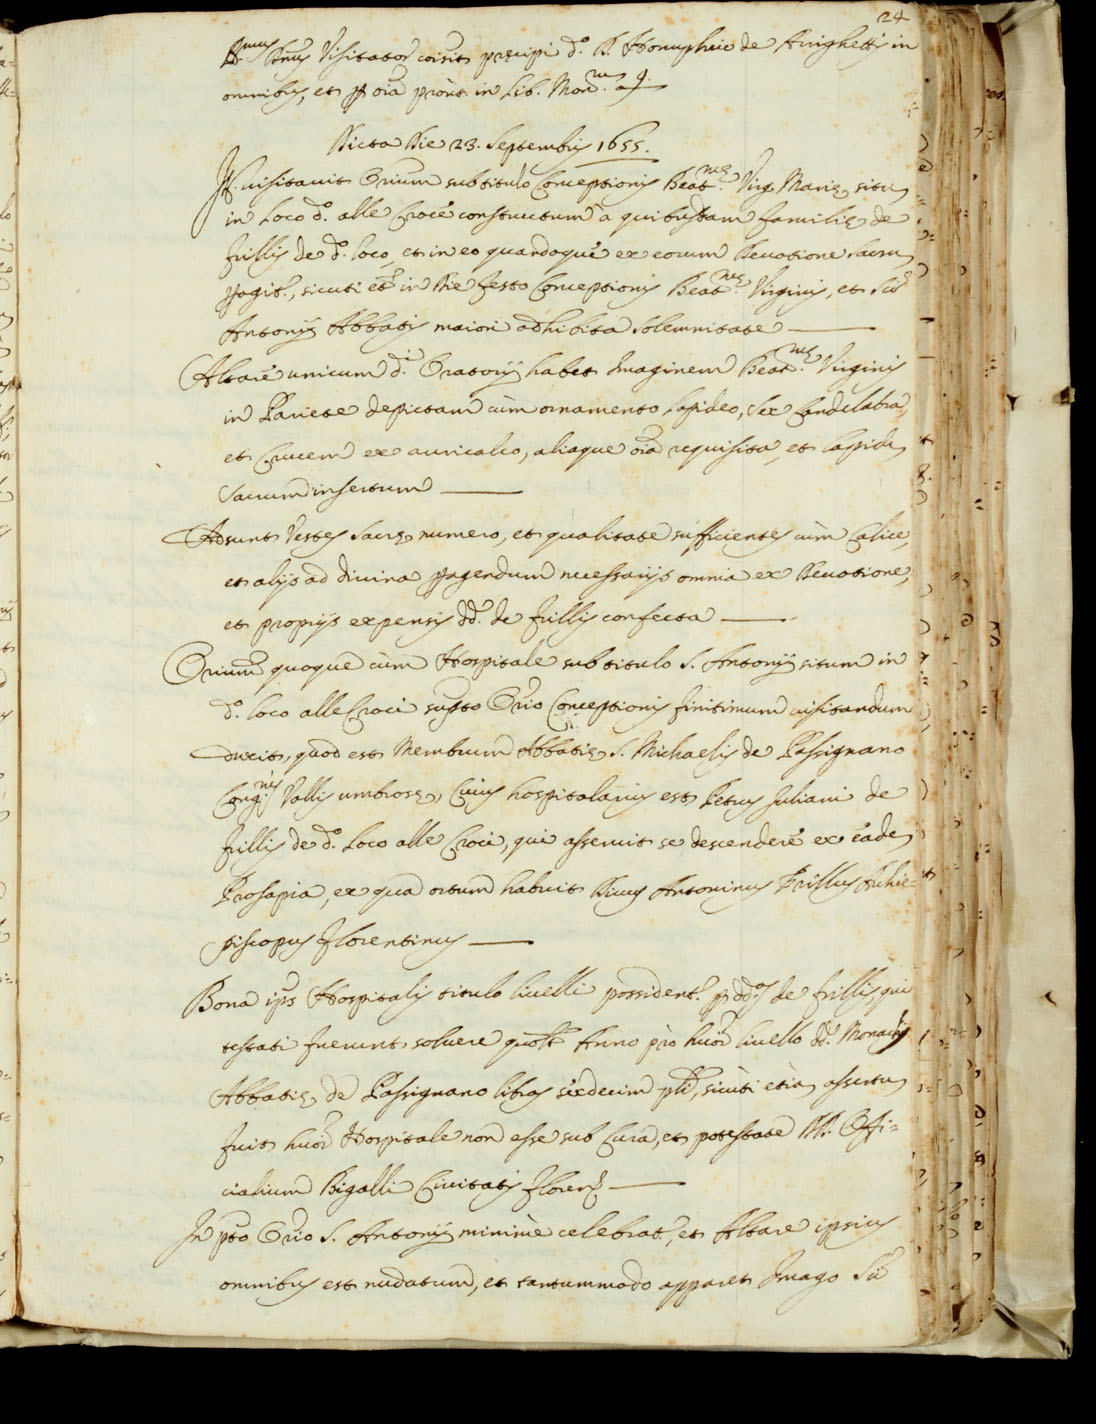 24
R.mus Dnus Visitator coṁisit prcipi d.o D. Honuphrio de Arrighettis in
omnibus, et p oia proùt in Lib. Mon.m a 9.
Dicta Die 23. Septembris 1655.
It. uisitauit Orium sub titulo Conceptionis Beat.me Virg. Marie situ
in Loco d.o alle Croce constructum à quibusdam familie de
frillis de d.o loco, et in eo quandoque ex eorum Deuotione Sacru
pagit.r, sicuti et in Die festo Conceptionis Beat.me Virginis, et Sti
Antonij Abbatis maiori adhibita solemnitate
Altare unicum d.i Oratorij habet Imaginem Beat.me Virginis
in Pariete depictam cùm ornamento lapideo, sex Candelabra,
et Crucem ex auricalco, aliaque oia requisita, et lapide
Sacrum insertum
Adsunt Vestes Sacre numero, et qualitate sufficientes cùm Calice,
et alijs ad diuina pagendum necessarijs omnia ex Deuotione,
et proprijs expensis dd. de frillis confecta
Orium quoque cùm Hospitale sub titulo S. Antonij situm in
d.o loco alle Croci supto Orio Conceptionis finitimum uisitandum
duxit, quod est Membrum Abbatie S. Michaelis de Passignano
Cong.nis Vallis umbrose, Cuius hospitalarius est Petrus Juliani de
frillis de d.o Loco alle Croci, qui asseruit se descendere ex eade
Prosapia, ex qua ortum habuit Diuus Antoninus Frillus Archie=
piscopus Florentinus
Bona ips Hospitalis titulo liuelli possident.r p dd.os de frillis, qui
testati fuerunt soluere quolt Anno prò huõi liuello dd. Monachis
Abbatie de Passignano libras sexdecim pli, sicùti etia assertu
fuit huõi Hospitale non esse sub Cura, et potestate Ill. Offi=
cialium Bigalli Ciuitatis floren.
In pto Orio S. Antonij minimè celebrat.r, et Altare ipsius
omnibus est nudatum, et tantummodo apparet Imago Sti